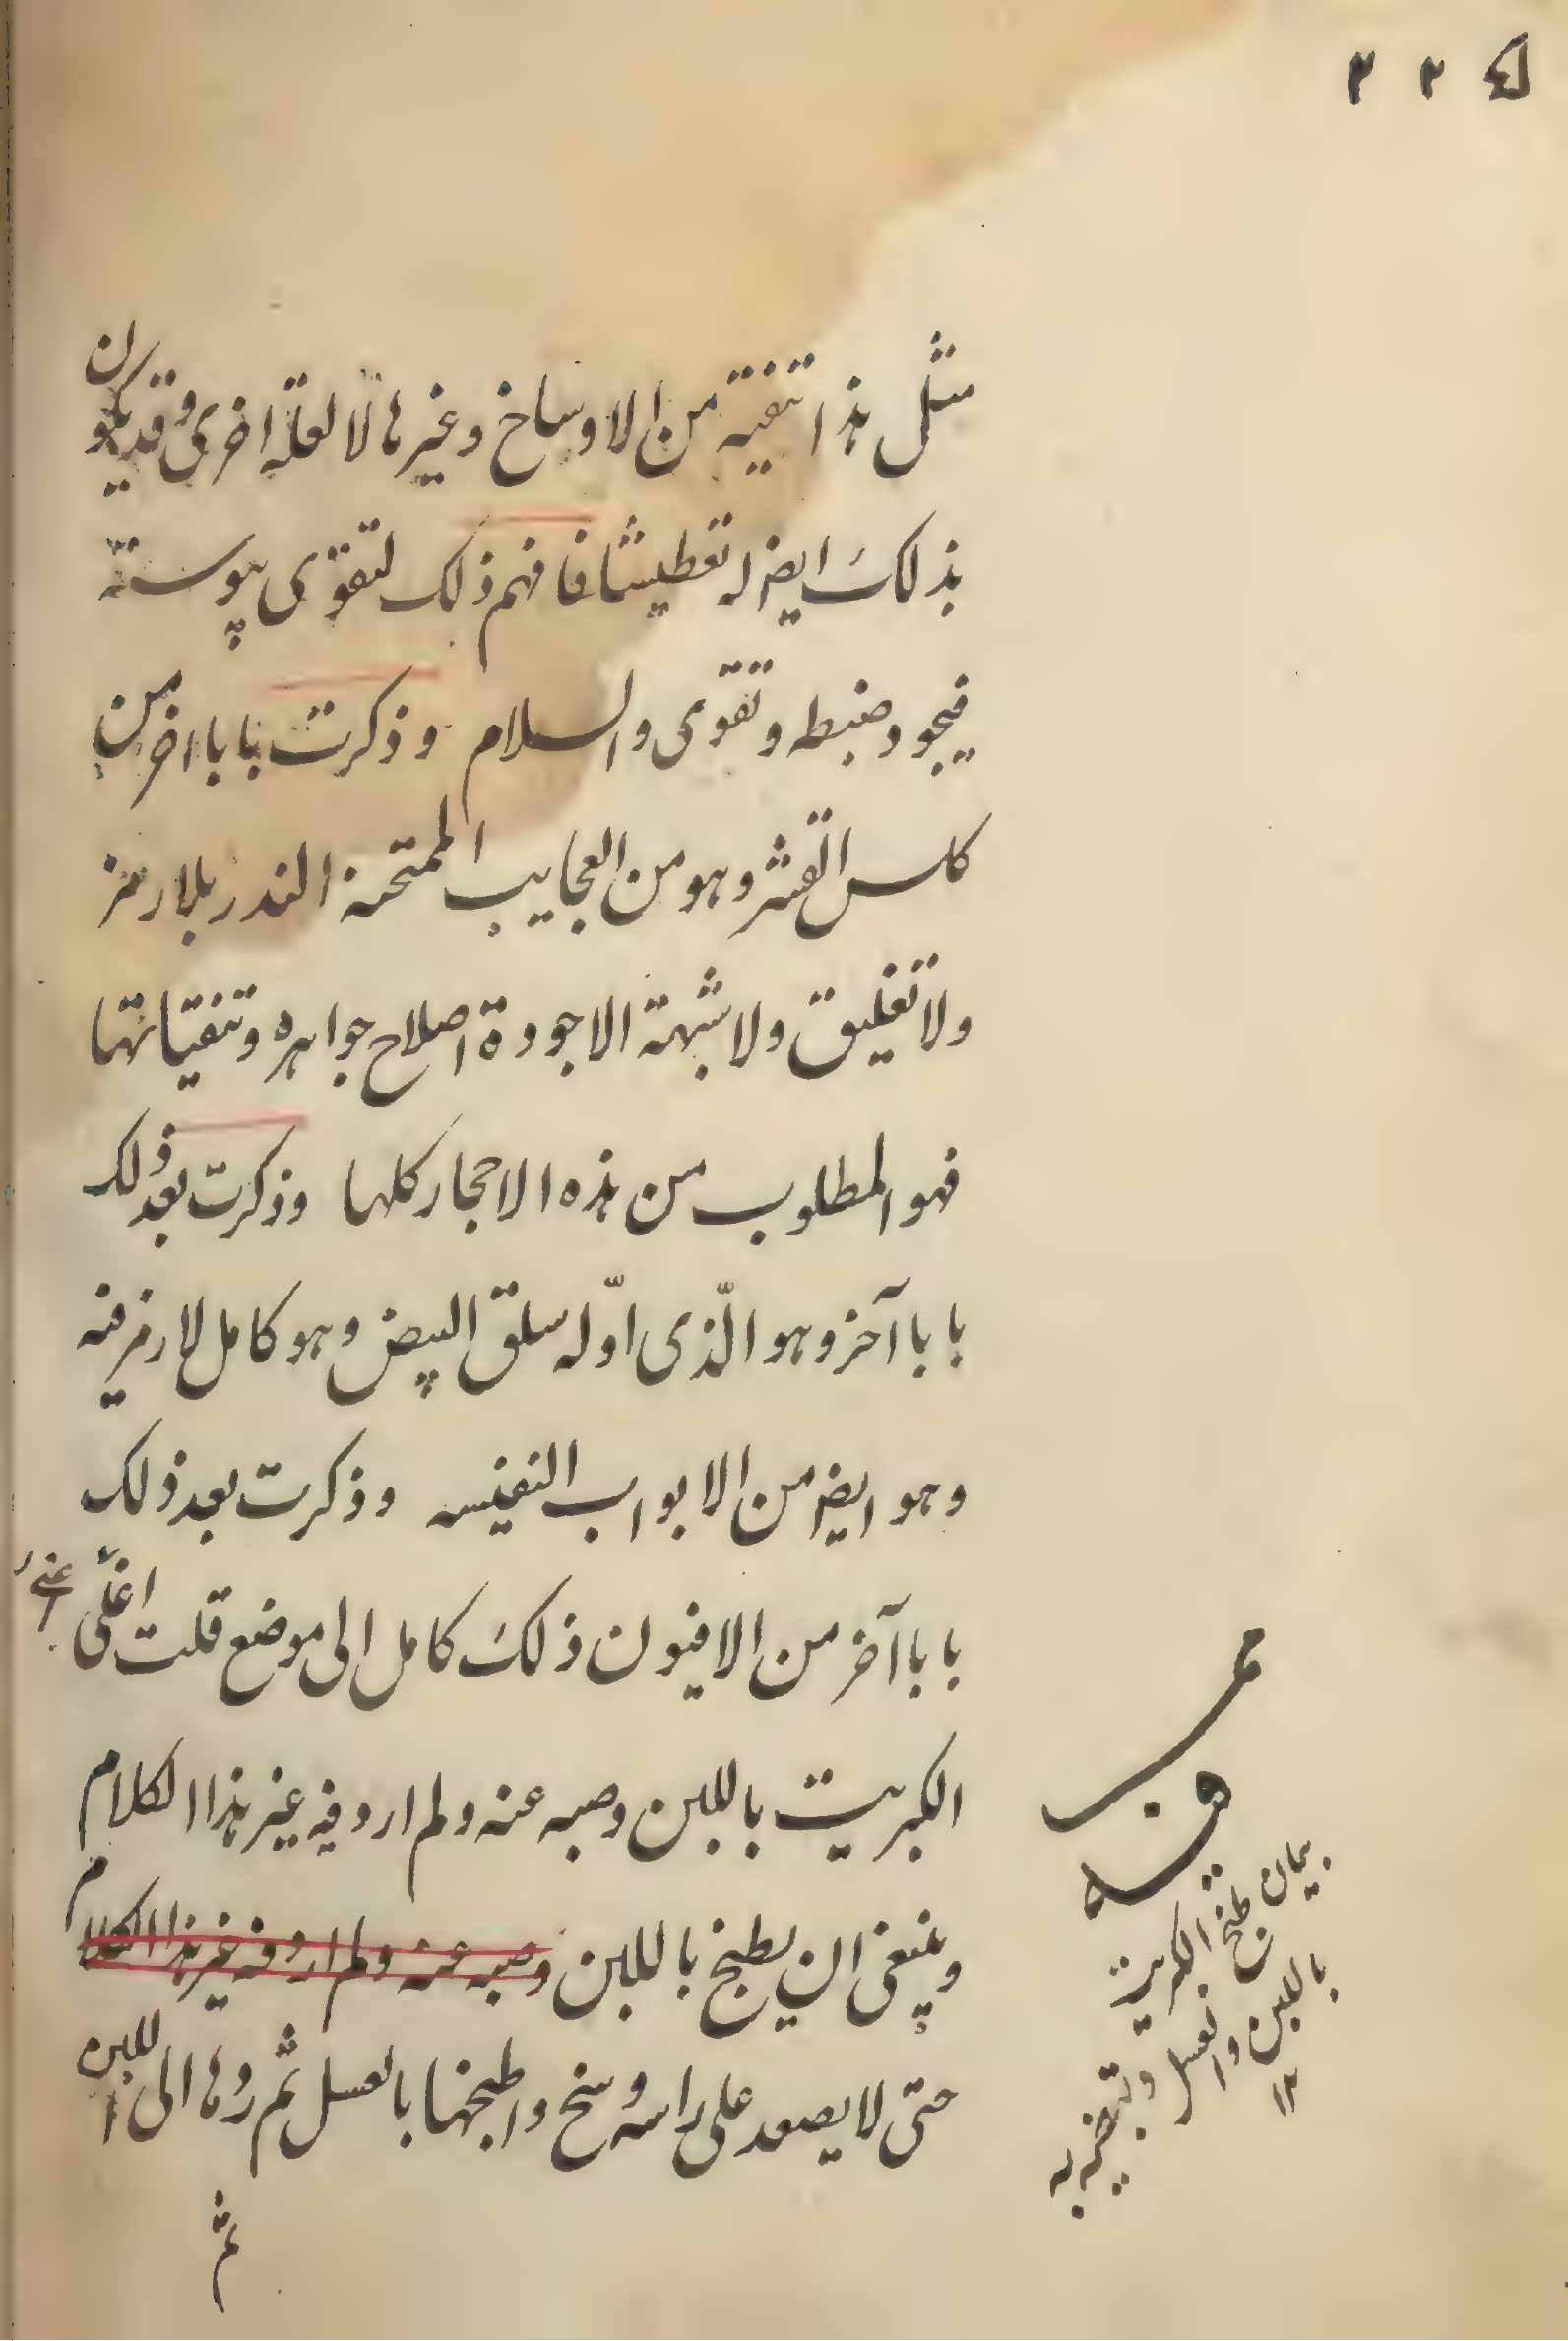 مثل هذا تنقيته من الاوساخ وغيرها لا لعلة اخرى وقد يكون
بذلك ايضا له تعطيشا فافهم ذلك لتقوى يبوسته
فيجود ضبطه وتقوى والسلام وذكرت بابا اخر من
كلس القشر وهو من العجايب الممتحنة الندر بلا رمز
ولا تغليق ولا شبهة الا جودة اصلاح جواهره وتنقياتها
فهو المطلوب من هذه الاحجار كلها وذكرت بعد ذلك
بابا آخر وهو الّذى اوّله سلق البيض وهو كامل لا رمز فيه
وهو ايضا من الابواب النفيسه وذكرت بعد ذلك
بابا آخر من الافيون ذلك كامل الى موضع قلت اغلى
الكبريت باللبن وصبه عنه ولم ارو فيه غير هذا الكلام
وينبغى ان يطبخ باللبن وصبه عنه ولم ارو فيه غير هذا الكلام
حتى لا يصعد على راسه وسخ واطبخها بالعسل ثم ردها الى اللبن
ثم
بيان طبخ الكبريت
باللبن والعسل وتبييضه به
١٢